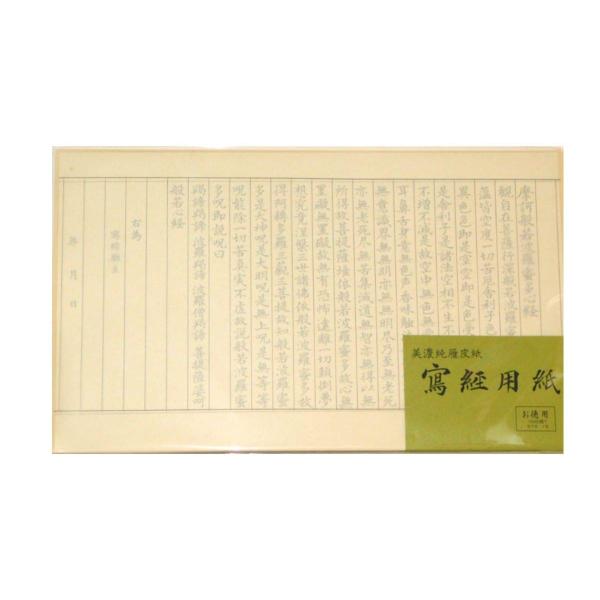 摩訶般若波羅蜜多心経
観自在菩薩行深般若波羅
蘊皆空度一切苦厄舎利子色
異色即是空空即是色受
是舎利子是諸法空相不生不
不増不減是故空中無色無受
耳鼻舌身意無色声香味触
無意識界無無明亦無無明尽乃至無老死
亦無老死尽無苦集滅道無智亦無得以無
所得故菩提薩埵依般若波羅蜜多故心無
罣礙無罣礙故無有恐怖遠離一切顛倒夢
想究竟涅槃三世諸佛依般若波羅蜜多故
得阿耨多羅三藐三菩提故知般若波羅蜜
多是大神呪是大明呪是無上呪是無等等
呪能除一切苦真実不虚故説般若波羅蜜
多呪即説呪曰
羯諦羯諦 波羅羯諦 波羅僧羯諦 菩提薩婆訶
般若心経
右為
年 月 日
美濃純雁皮紙
寫經用紙
お徳用